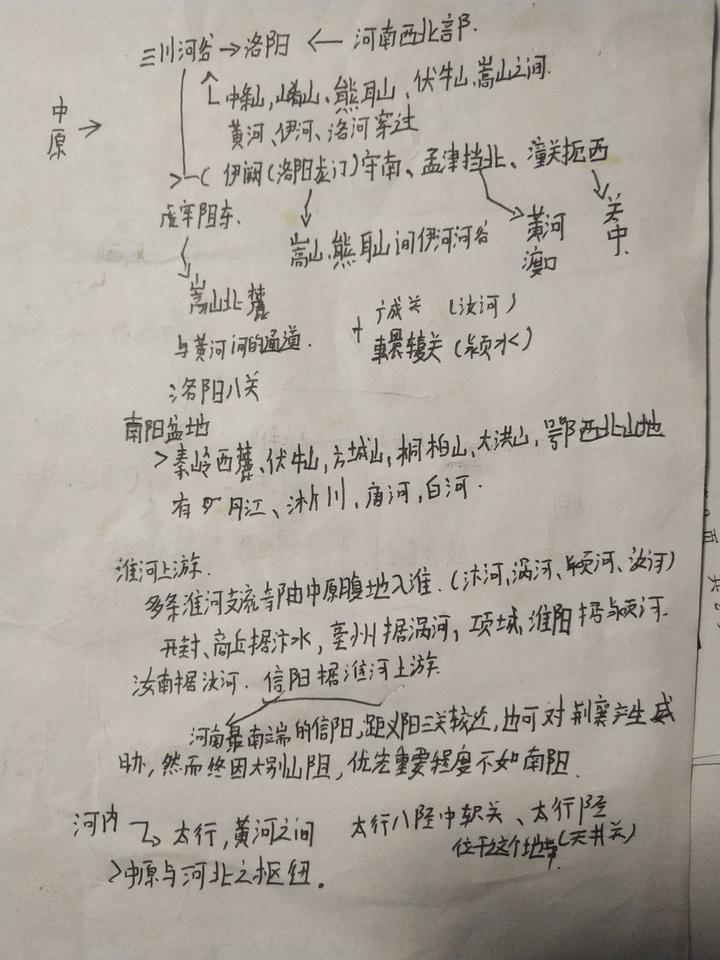 三川河谷→洛阳 ← 河南西北部.
中原 →
中条山,崤山、熊耳山、伏牛山、嵩山之间.
黄河、伊河、洛河穿过
伊阙(洛阳龙门)守南、孟津挡北、潼关扼西
虎牢阻东.
嵩山、熊耳山间伊河河谷
黄河渡口
关中.
嵩山北麓
与黄河间的通道.
+ 广成关 (汝河)
轘辕关 (颍水)
洛阳八关
南阳盆地
>秦岭西麓、伏牛山,方城山,桐柏山、大洪山,鄂西北山地
有 丹江、淅川,唐河,白河.
淮河上游.
多条淮河支流皆由中原腹地入淮.(汴河、涡河、颍河、汝河)
开封、商丘据汴水,亳州据涡河,项城,淮阳据颍河.
汝南据汝河. 信阳据淮河上游.
河南最南端的信阳,距义阳三关较近,也可对荆襄产生威
胁,然而终因大别山阻,优先重要程度不如南阳.
河内 太行,黄河之间
太行八陉中轵关、太行陉
位于这个地 (天井关)
>中原与河北之枢纽。